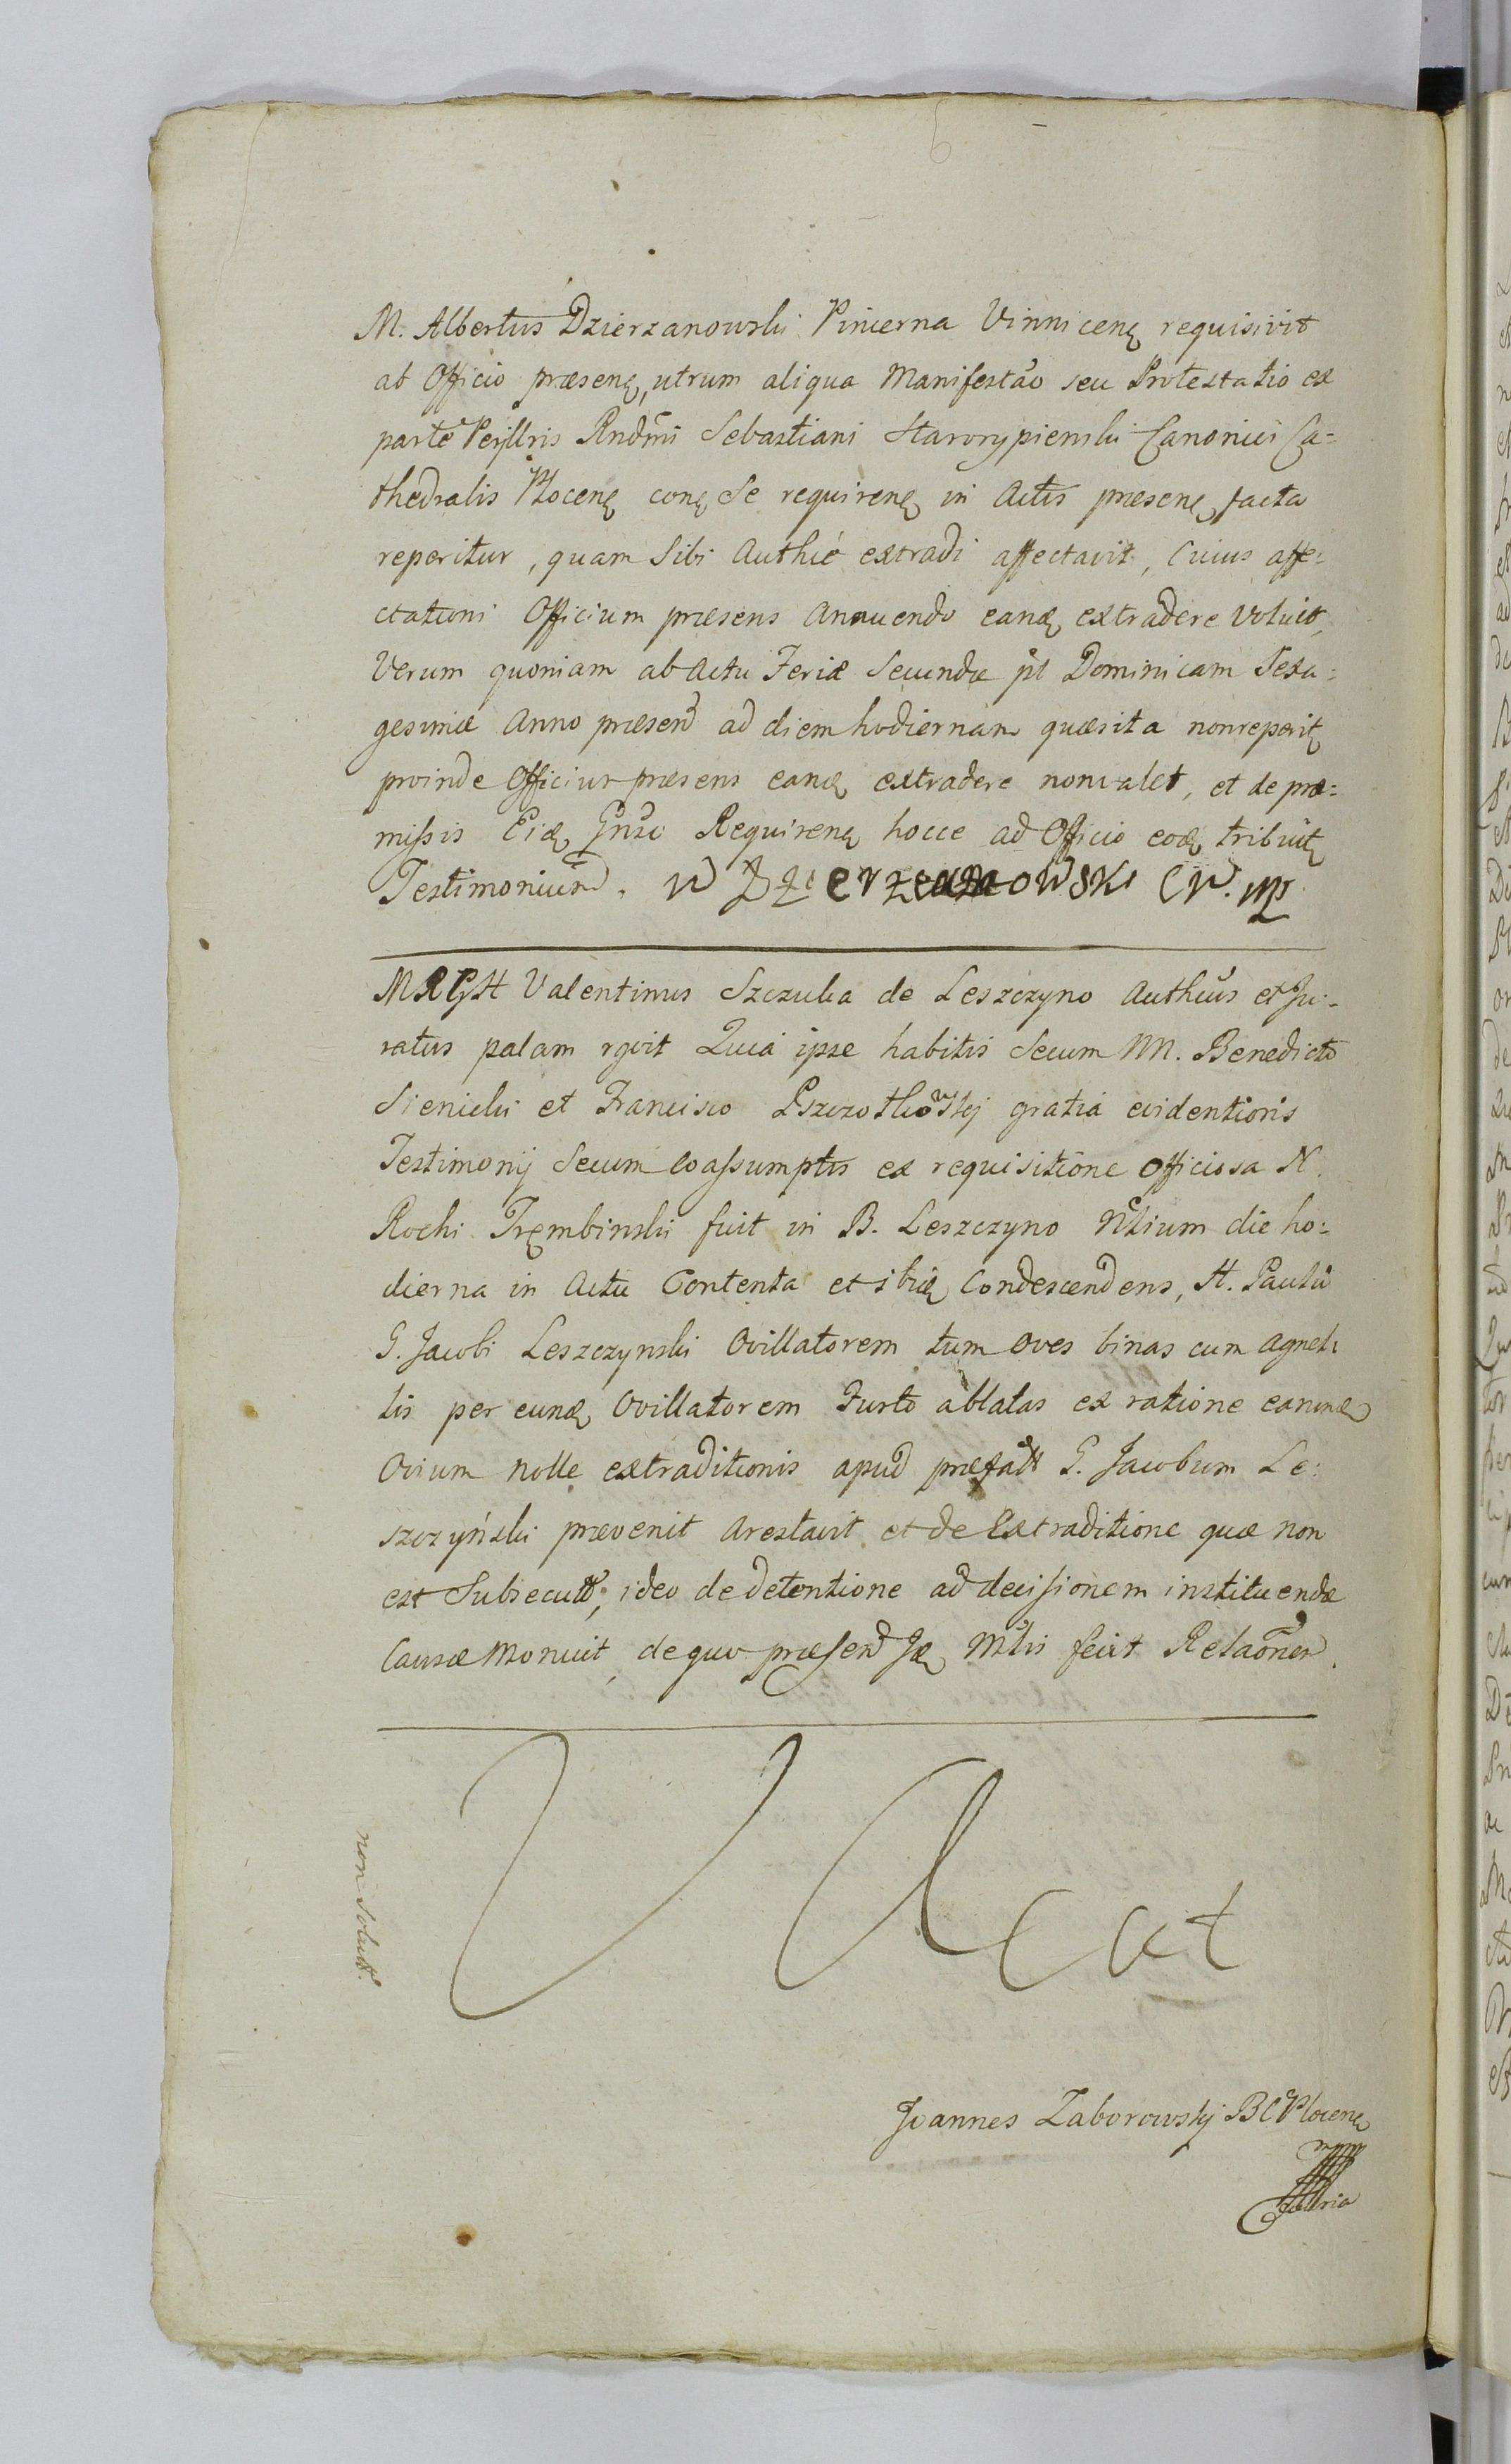 M. Albertus Dzierzanowski Pincerna Vinnicenę requisivit
ab Officio præsenę, utrum aliqua Manifestaõ seu Protestatio ex
parte Perjllris Rndmi Sebastiani Starorypienski Canonici Ca=
thedralis Płocenę conę Se requirenę in Actis præsenę facta
reperitur, quam Sibi Authće extradi affectavit, Cuius affe=
ctationi Officium præsens Annuendo eandę extradere voluit,
Verum quoniam ab Actu Feriæ Secundæ pt Dominicam Sexa=
gesimæ Anno præsend ad diem hodiernam quæsita non reperitę
proinde Officium præsens eandę extradere non valet, et de præ=
missis Eidę Gnso Requirenę hocce ad Officio eodę tribuitę
Testimonium. W Dzierzanowski CW. mp
MRGH Valentinus Szczuka de Leszczyno Authcus et Ju=
ratus palam rgvit Quia ipse habitis Secum NN. Benedicto
Sienicki et Francisco Pszczotkowskj gratia evidentioris
Testimonij Secum coassumptis ex requisitione Officiosa N.
Rochi Trembinski fuit in B. Leszczyno Nltium die ho=
dierna in Actu Contenta et ibidę Condescendens, H. Paulu
G. Jacobi Leszczynski Ovillatorem tum oves binas cum agnel
lis per eundę Ovillatorem Furto ablatas ex ratione earundę
Ovium nolle extraditionis apud præfat G. Jacobum Le=
szczyński prævenit arestavit et de Extraditione quæ non
est Subsecuta, ideo de detentione ad decisionem instituendæ
Causæ Monuit, de quo præsend Jdę Mtlis fecit Relaõnem.
VAcat
non solutt.
Joannes Zaborowskj BCPlocenę
mpp